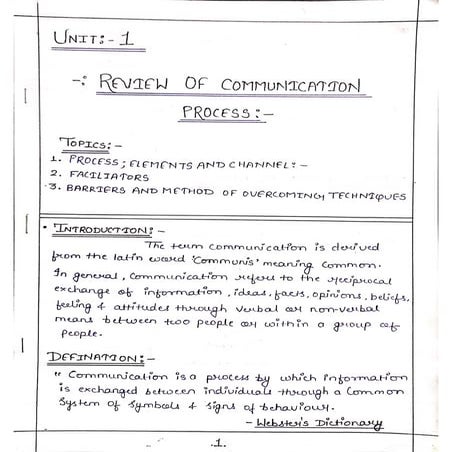 UNIT:- 1
-: REVIEW OF COMMUNICATION
PROCESS:-
TOPICS:-
1. PROCESS; ELEMENTS AND CHANNEL:-
2. FACILIATORS
3. BARRIERS AND METHOD OF OVERCOMING TECHNIQUES
• INTRODUCTION:-
The term communication is derived
from the latin word 'Communis' meaning Common.
In general, Communication refers to the reciprocal
exchange of information, ideas, facts, opinions, beliefs,
feeling & attitudes through verbal or non-verbal
means between two people or within a group of
people.
DEFINATION:-
" Communication is a process by which information
is exchanged between individuals through a Common
System of Symbols & Signs of behaviour.
- Webster's Dictionary
.1.